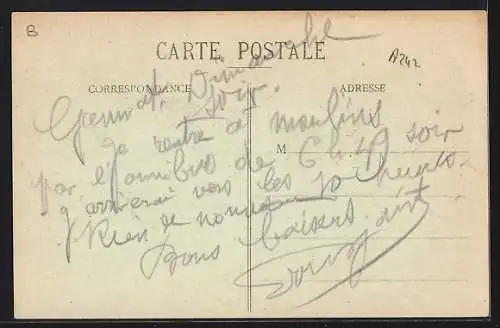 B
A242
CARTE POSTALE
CORRESPONDANCE
ADRESSE
M
Dimanche
soir.
Je rentre à Moulins
par l'omnibus de 6h47 soir
j'arriverai vers les 10 heures
Rien de nouveau
Bons baisers